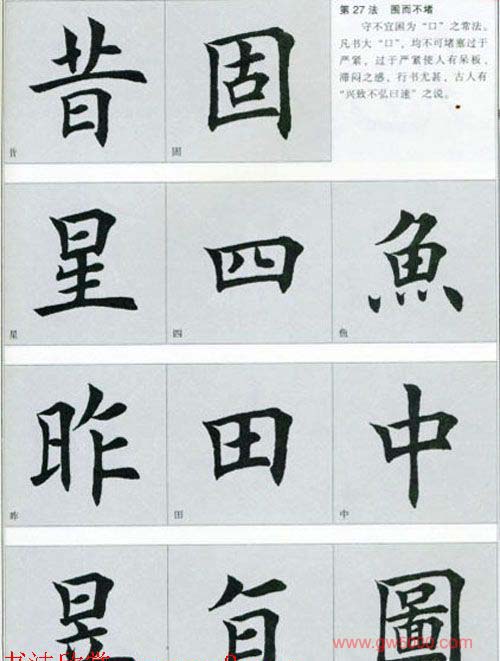 第27法 围而不堵
守不宜困为“口”之常法。
凡书大“口”，均不可堵塞过于
严紧，过于严紧使人有呆板、
滞闷之感，行书尤甚，古人有
“兴致不弘曰速”之说。
昔 固
昔 固
星 四 魚
星 四 鱼
昨 田 中
昨 田 中
圖
www.gw5000.com